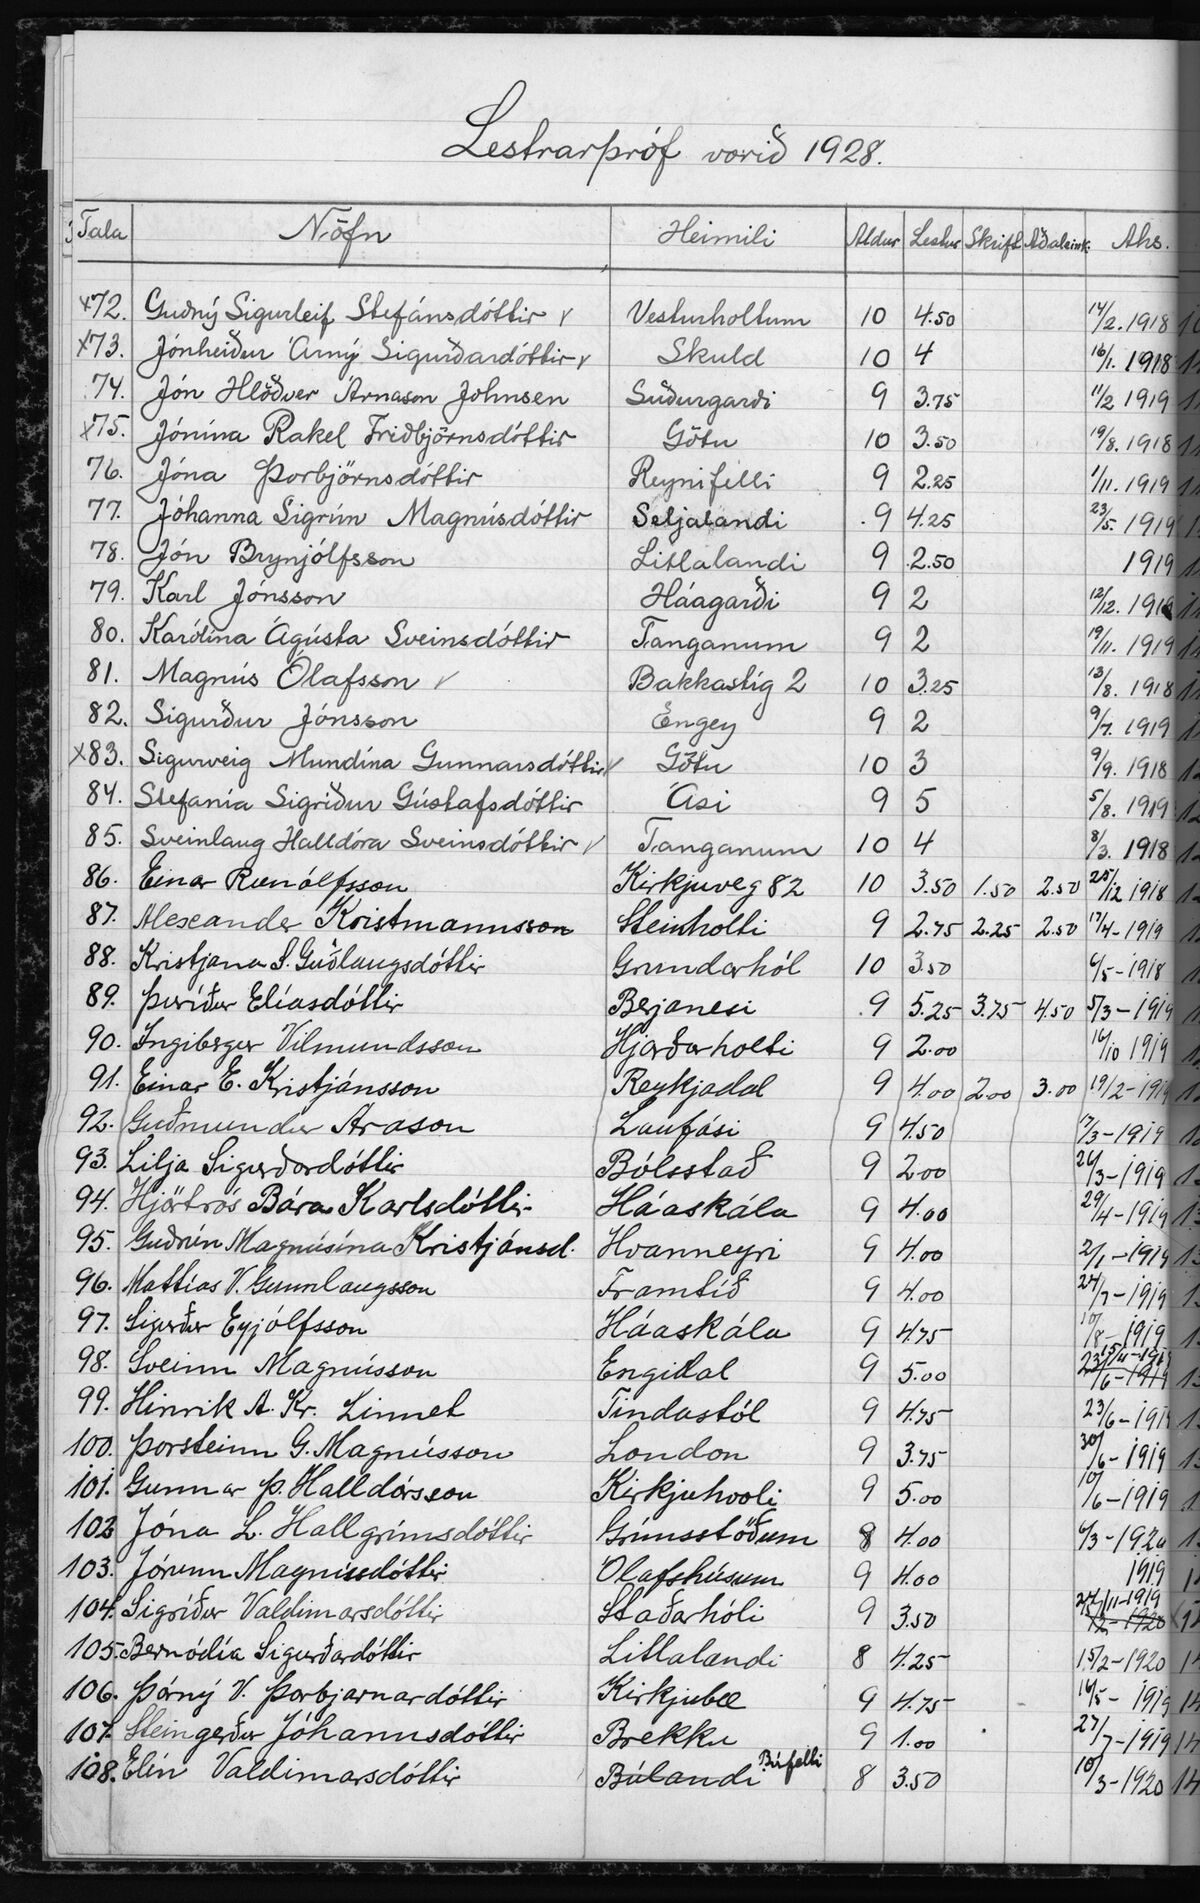 Lestrarpróf vorið 1928.
Tala Nöfn Heimili Aldur Lestur Skrift Aðaleink. Aths.
x72. Guðný Sigurleif Stefánsdóttir v Vesturholtum 10 4.50 14/2. 1918
x73. Jónheiður Árný Sigurðardóttir v Skuld 10 4 16/1. 1918
74. Jón Hlöðver Árnason Johnsen Suðurgarði 9 3.75 11/2 1919
x75. Jónína Rakel Friðbjörnsdóttir Götu 10 3.50 19/8. 1918
76. Jóna Þorbjörnsdóttir Reynifelli 9 2.25 1/11. 1919
77. Jóhanna Sigrún Magnúsdóttir Seljalandi 9 4.25 23/5. 1919
78. Jón Brynjólfsson Litlalandi 9 2.50 1919
79. Karl Jónsson Háagarði 9 2 12/12. 1919
80. Karólína Ágústa Sveinsdóttir Tanganum 9 2 19/11. 1919
81. Magnús Ólafsson v Bakkastíg 2 10 3.25 13/8. 1918
82. Sigurður Jónsson Engey 9 2 9/7. 1919
x83. Sigurveig Mundína Gunnarsdóttir v Götu 10 3 9/9. 1918
84. Stefanía Sigríður Gústafsdóttir Ási 9 5 5/8. 1919
85. Sveinlaug Halldóra Sveinsdóttir v Tanganum 10 4 8/3. 1918
86. Einar Runólfsson Kirkjuveg 82 10 3.50 1.50 2.50 25/12 1918
87. Alexander Kristmannsson Steinholti 9 2.75 2.25 2.50 17/4-1919
88. Kristjana S. Guðlaugsdóttir Grundarhól 10 3.50 6/5-1918
89. Þuríður Elíasdóttir Berjanesi 9 5.25 3.75 4.50 5/3-1919
90. Ingibergur Vilmundsson Hjarðarholti 9 2.00 16/10 1919
91. Einar E. Kristjánsson Reykjadal 9 4.00 2.00 3.00 19/2-1919
92. Guðmundur Arason Laufási 9 4.50 17/3-1919
93. Lilja Sigurðardóttir Bólstað 9 2.00 26/3-1919
94. Hjörtrós Bára Karlsdóttir Háaskála 9 4.00 29/4-1919
95. Guðrún Magnúsína Kristjánsd. Hvanneyri 9 4.00 2/1-1919
96. Mattías V. Gunnlaugsson Framtíð 9 4.00 24/7-1919
97. Sigurður Eyjólfsson Háaskála 9 4.75 10/8-1919
98. Sveinn Magnússon Engidal 9 5.00 23/6-1919
99. Hinrik A. Kr. Linnet Tindastól 9 4.75 23/6-1919
100. Þorsteinn G. Magnússon London 9 3.75 30/6-1919
101. Gunnar Þ. Halldórsson Kirkjuhvoli 9 5.00 10/6-1919
102 Jóna L. Hallgrímsdóttir Grímsstöðum 8 4.00 6/3-1920
103. Jórunn Magnúsdóttir Ólafshúsum 9 4.00 1919
104. Sigríður Valdimarsdóttir Staðarhóli 9 3.50 27/11-1919
105. Bernódía Sigurðardóttir Litlalandi 8 4.25 15/2-1920
106. Þórný V. Þorbjarnardóttir Kirkjubæ 9 4.75 16/5-1919
107. Steingerður Jóhannsdóttir Brekku 9 1.00 27/7-1919
108. Elín Valdimarsdóttir Búlandi Búfelli 8 3.50 10/3-1920